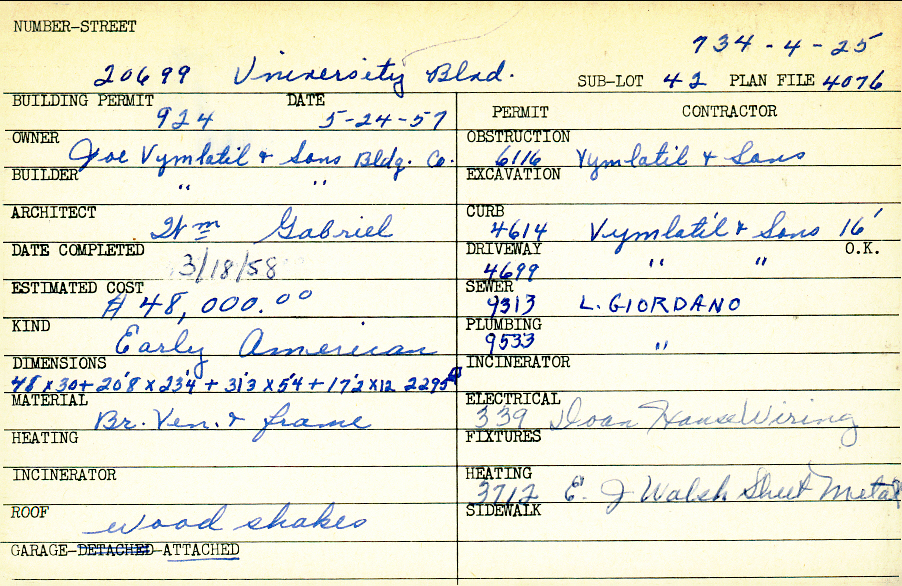 NUMBER-STREET
734-4-25
20699 University Blvd.
SUB-LOT 42 PLAN FILE 4076
BUILDING PERMIT DATE
924 5-24-57
OWNER
Joe Vymlatil & Sons Bldg. Co.
BUILDER
" "
ARCHITECT
Wm Gabriel
DATE COMPLETED
3/18/58
ESTIMATED COST
$ 48,000.00
KIND
Early American
DIMENSIONS
48 x 30 + 20'8 x 23'4 + 31'3 x 5'4 + 17'2 x 12 2295
MATERIAL
Br. Ven. & frame
HEATING
INCINERATOR
ROOF
wood shakes
GARAGE-DETACHED-ATTACHED
PERMIT CONTRACTOR
OBSTRUCTION
6116 Vymlatil & Sons
EXCAVATION
CURB
4614 Vymlatil & Sons 16'
DRIVEWAY O.K.
4699 " "
SEWER
9313 L. GIORDANO
PLUMBING
9533 "
INCINERATOR
ELECTRICAL
339 Doan House Wiring
FIXTURES
HEATING
3712 E. J Walsh Sheet Metal
SIDEWALK